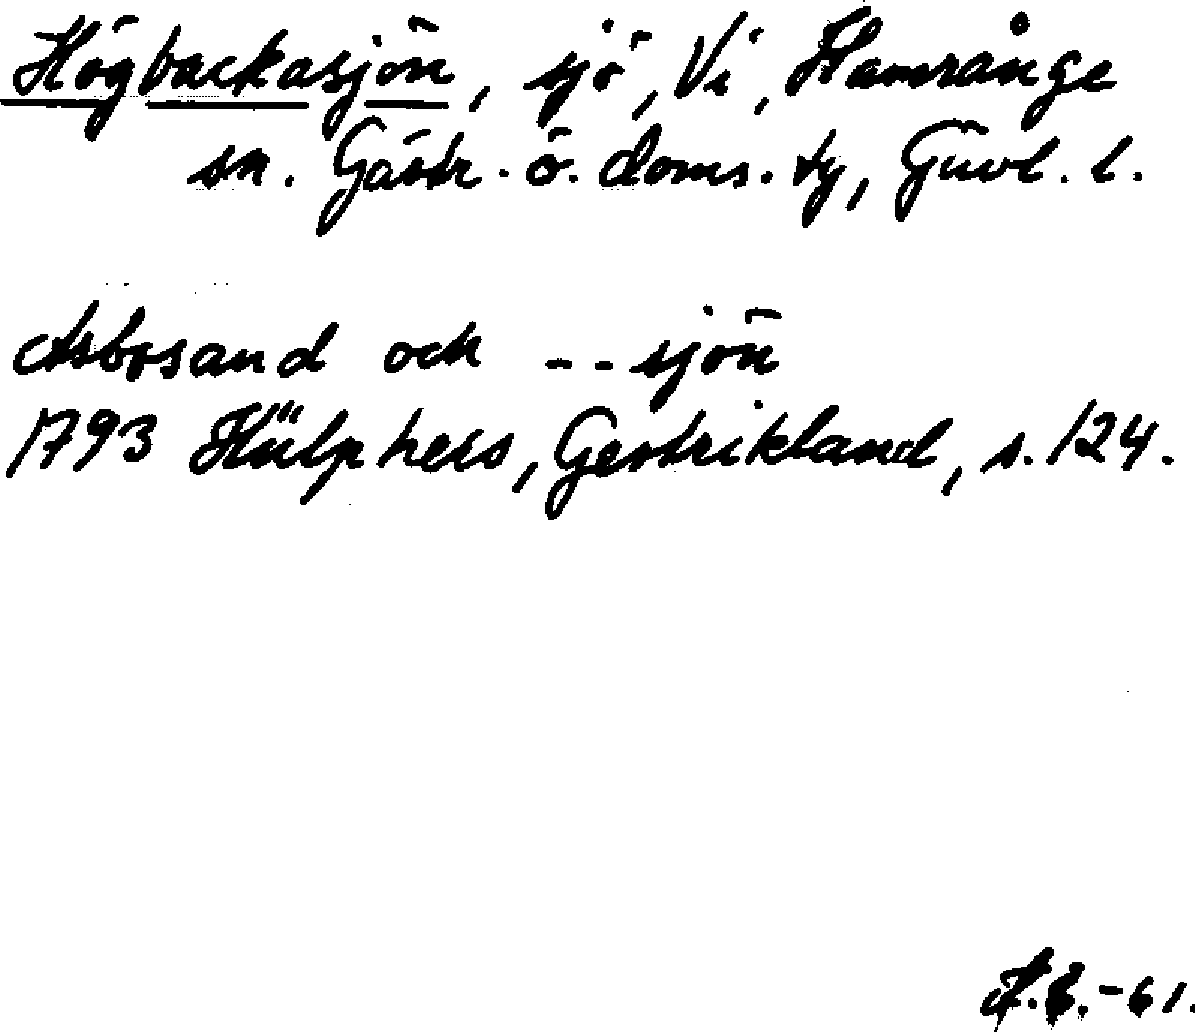 Högbackasjön, sjö, Vi, Hamrånge
sn. Gästr. ö. doms. tg, Gävl. l.
Åsbosand och -- sjön
1793 Hülphers, Gestrikland, s. 124.
-61.